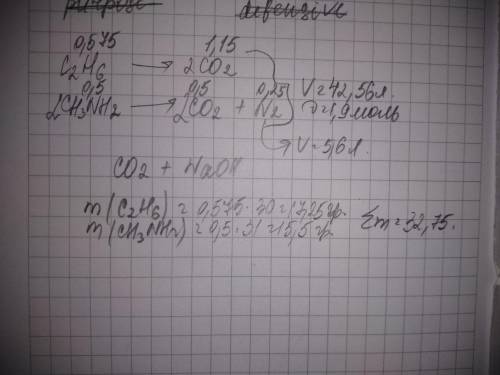 defensive
0,575 1,15
C2H6 → 2CO2
0,5 0,5 0,25 V=42,56л.
2CH3NH2 → 2CO2 + N2 ν=1,9моль
V=5,6л.
CO2 + NaOH
m(C2H6) = 0,575·30=17,25гр.
m(CH3NH2) = 0,5·31=15,5гр. Σm=32,75.